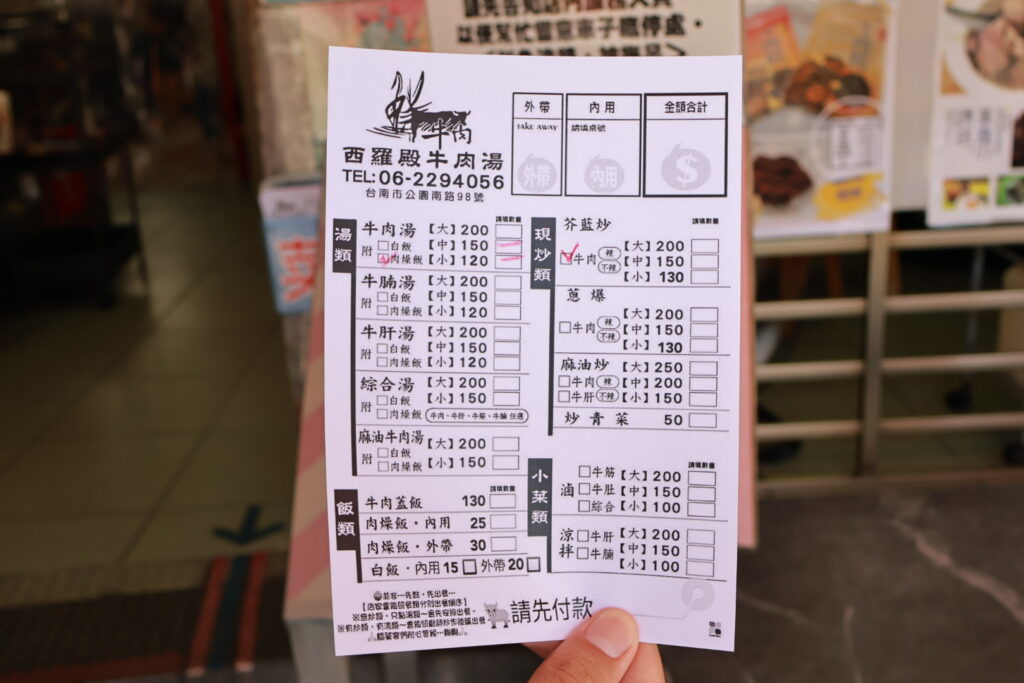 請先告知店內服務人員
鮮牛肉
西羅殿牛肉湯
TEL:06-2294056
台南市公園南路98號
外帶
TAKE AWAY
外帶
內用
請填桌號
內用
金額合計
$
湯類
請填數量
牛肉湯【大】200
附 白飯【中】150
肉燥飯【小】120
牛腩湯【大】200
附 白飯【中】150
肉燥飯【小】120
牛肝湯【大】200
附 白飯【中】150
肉燥飯【小】120
綜合湯【大】200
附 白飯【小】150
肉燥飯 (牛肉、牛肝、牛筋、牛腩 任選)
麻油牛肉湯【大】200
附 白飯
肉燥飯【小】150
飯類
請填數量
牛肉蓋飯 130
肉燥飯・內用 25
肉燥飯・外帶 30
白飯・內用15 外帶20
現炒類
請填數量
芥藍炒
牛肉 辣 不辣
【大】200
【中】150
【小】130
蔥爆
牛肉 辣 不辣
【大】200
【中】150
【小】130
麻油炒【大】250
牛肉 辣【中】200
牛肝 不辣【小】150
炒青菜 50
小菜類
請填數量
滷 牛筋【大】200
牛肚【中】150
綜合【小】100
涼拌 牛肝【大】200
牛腩【中】150
【小】100
請先付款